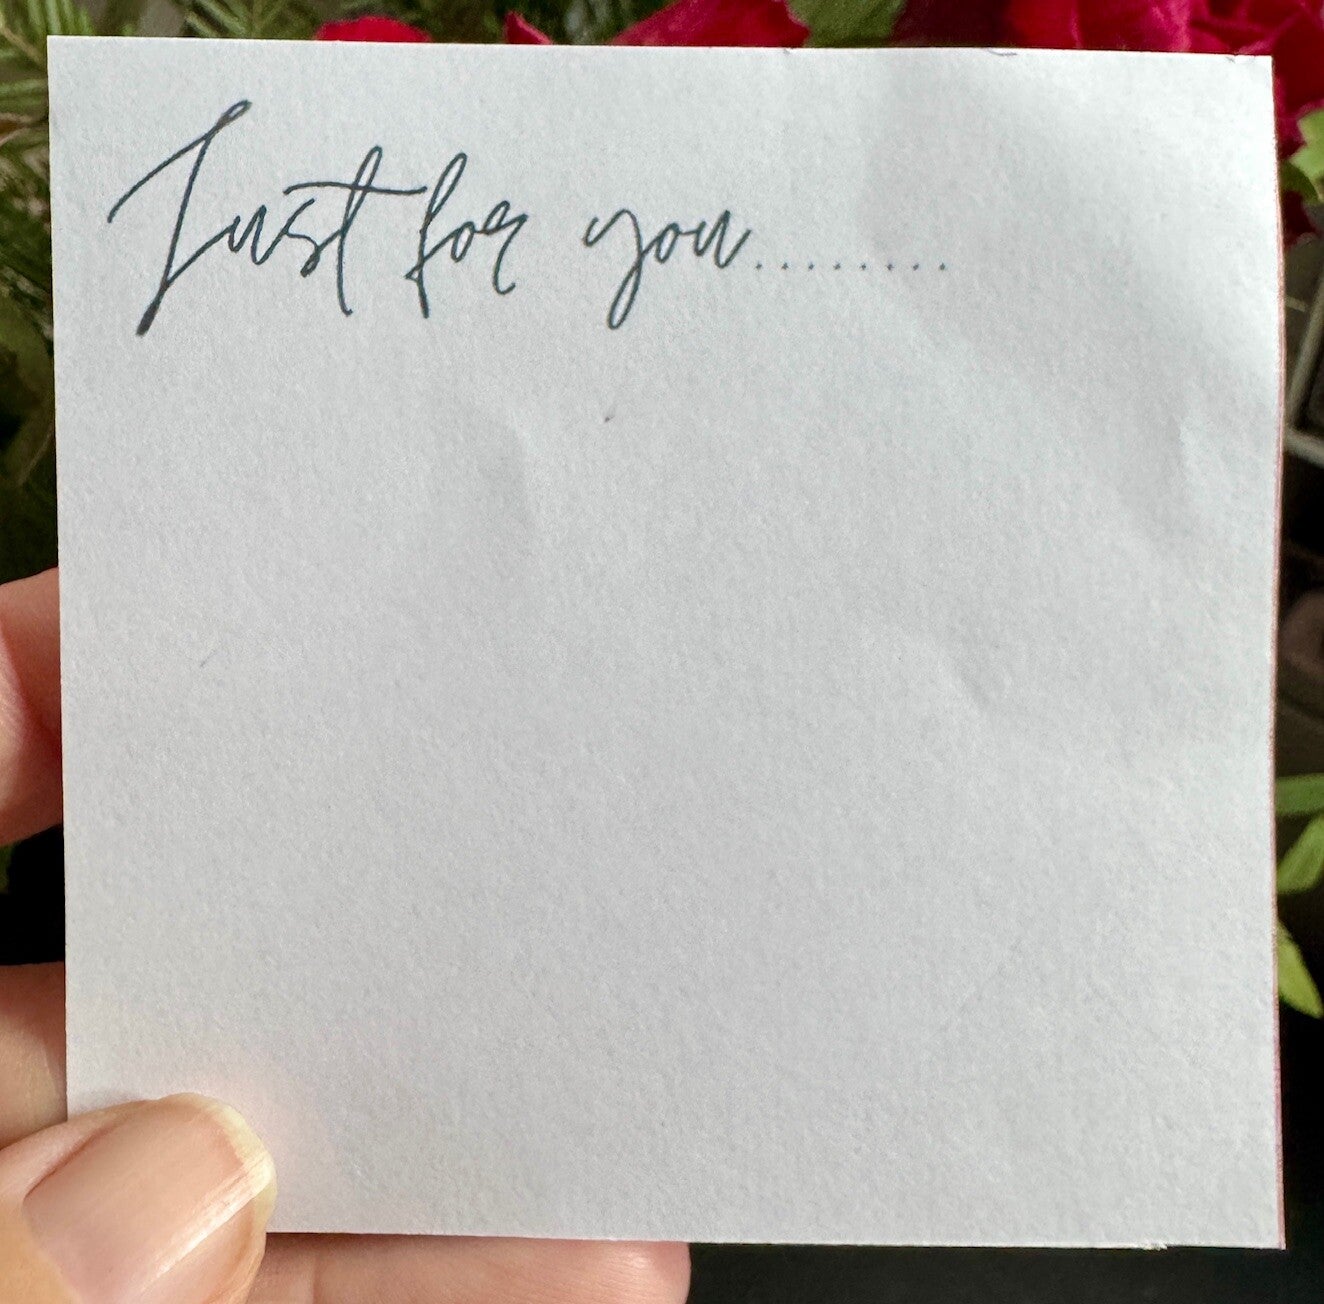 Just for you.........